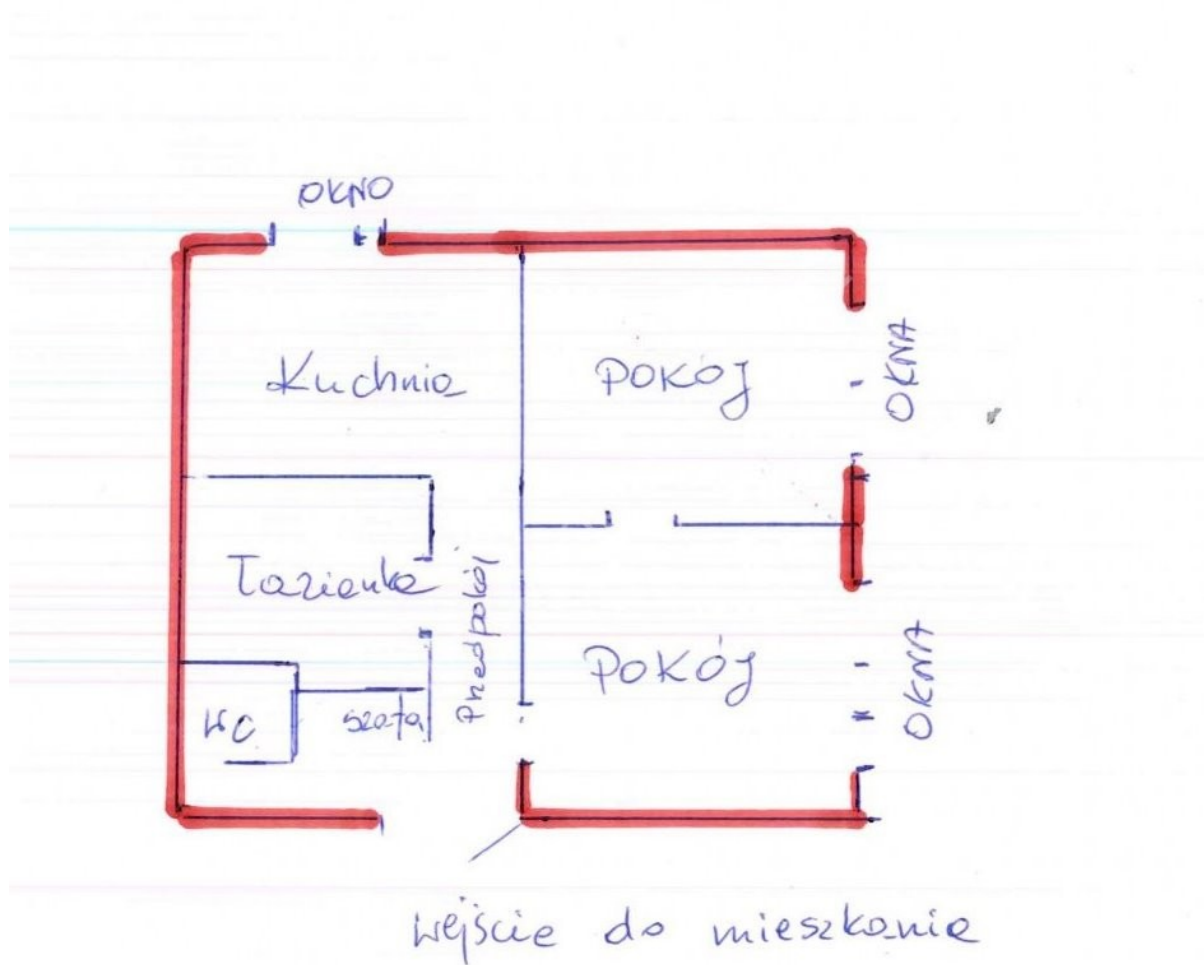 OKNO
Kuchnia
POKÓJ
OKNA
Łazienka
Przedpokój
POKÓJ
OKNA
WC
szafa
wejście do mieszkania